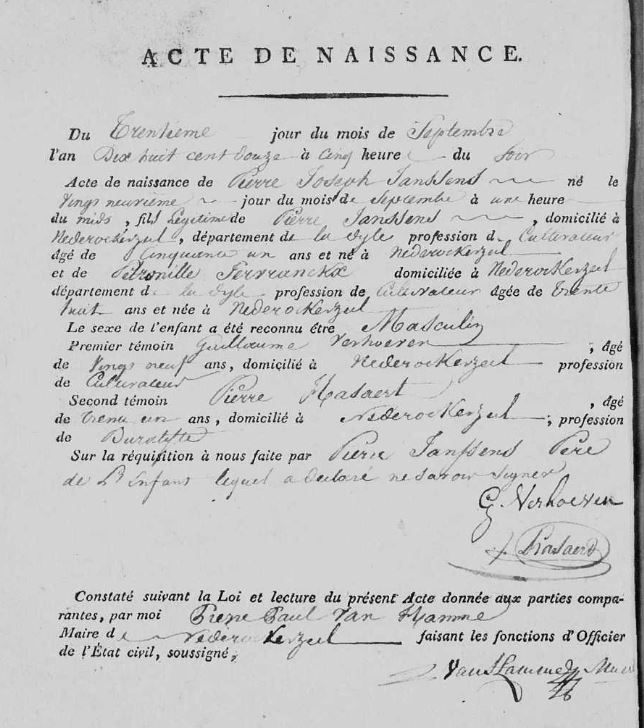 ACTE DE NAISSANCE.
Du Trentieme jour du mois de Septembre
l'an Dix huit cent douze à cinq heure du soir
Acte de naissance de Pierre Joseph Janssens né le
vingt neuvième jour du mois de septembre à une heure
du midi, fils Légitime de Pierre Janssens, domicilié à
Nederockerzeel, département de la Dyle profession d Cultivateur
âgé de Cinquante un ans et né à Nederockerzeel
et de Petronille Servranckx domiciliée à Nederockerzeel
département d la Dyle profession de Cultivateur âgée de trente
huit ans et née à Nederockerzeel
Le sexe de l'enfant a été reconnu être Masculin
Premier témoin Guillaume Verhoeven, âgé
de vingt neuf ans, domicilié à Nederockerzeel profession
de Cultivateur
Second témoin Pierre, âgé
de trente un ans, domicilié à Nederockerzeel; profession
de
Sur la réquisition à nous faite par Pierre Janssens Pere
de L'Enfant lequel a declaré ne savoir signer
G. Verhoeven
Constaté suivant la Loi et lecture du présent Acte donnée aux parties compa-
rantes, par moi Pierre Paul Van Hamme
Maire d Nederockerzeel faisant les fonctions d'Officier
de l'État civil, soussigné,
Van Hamme